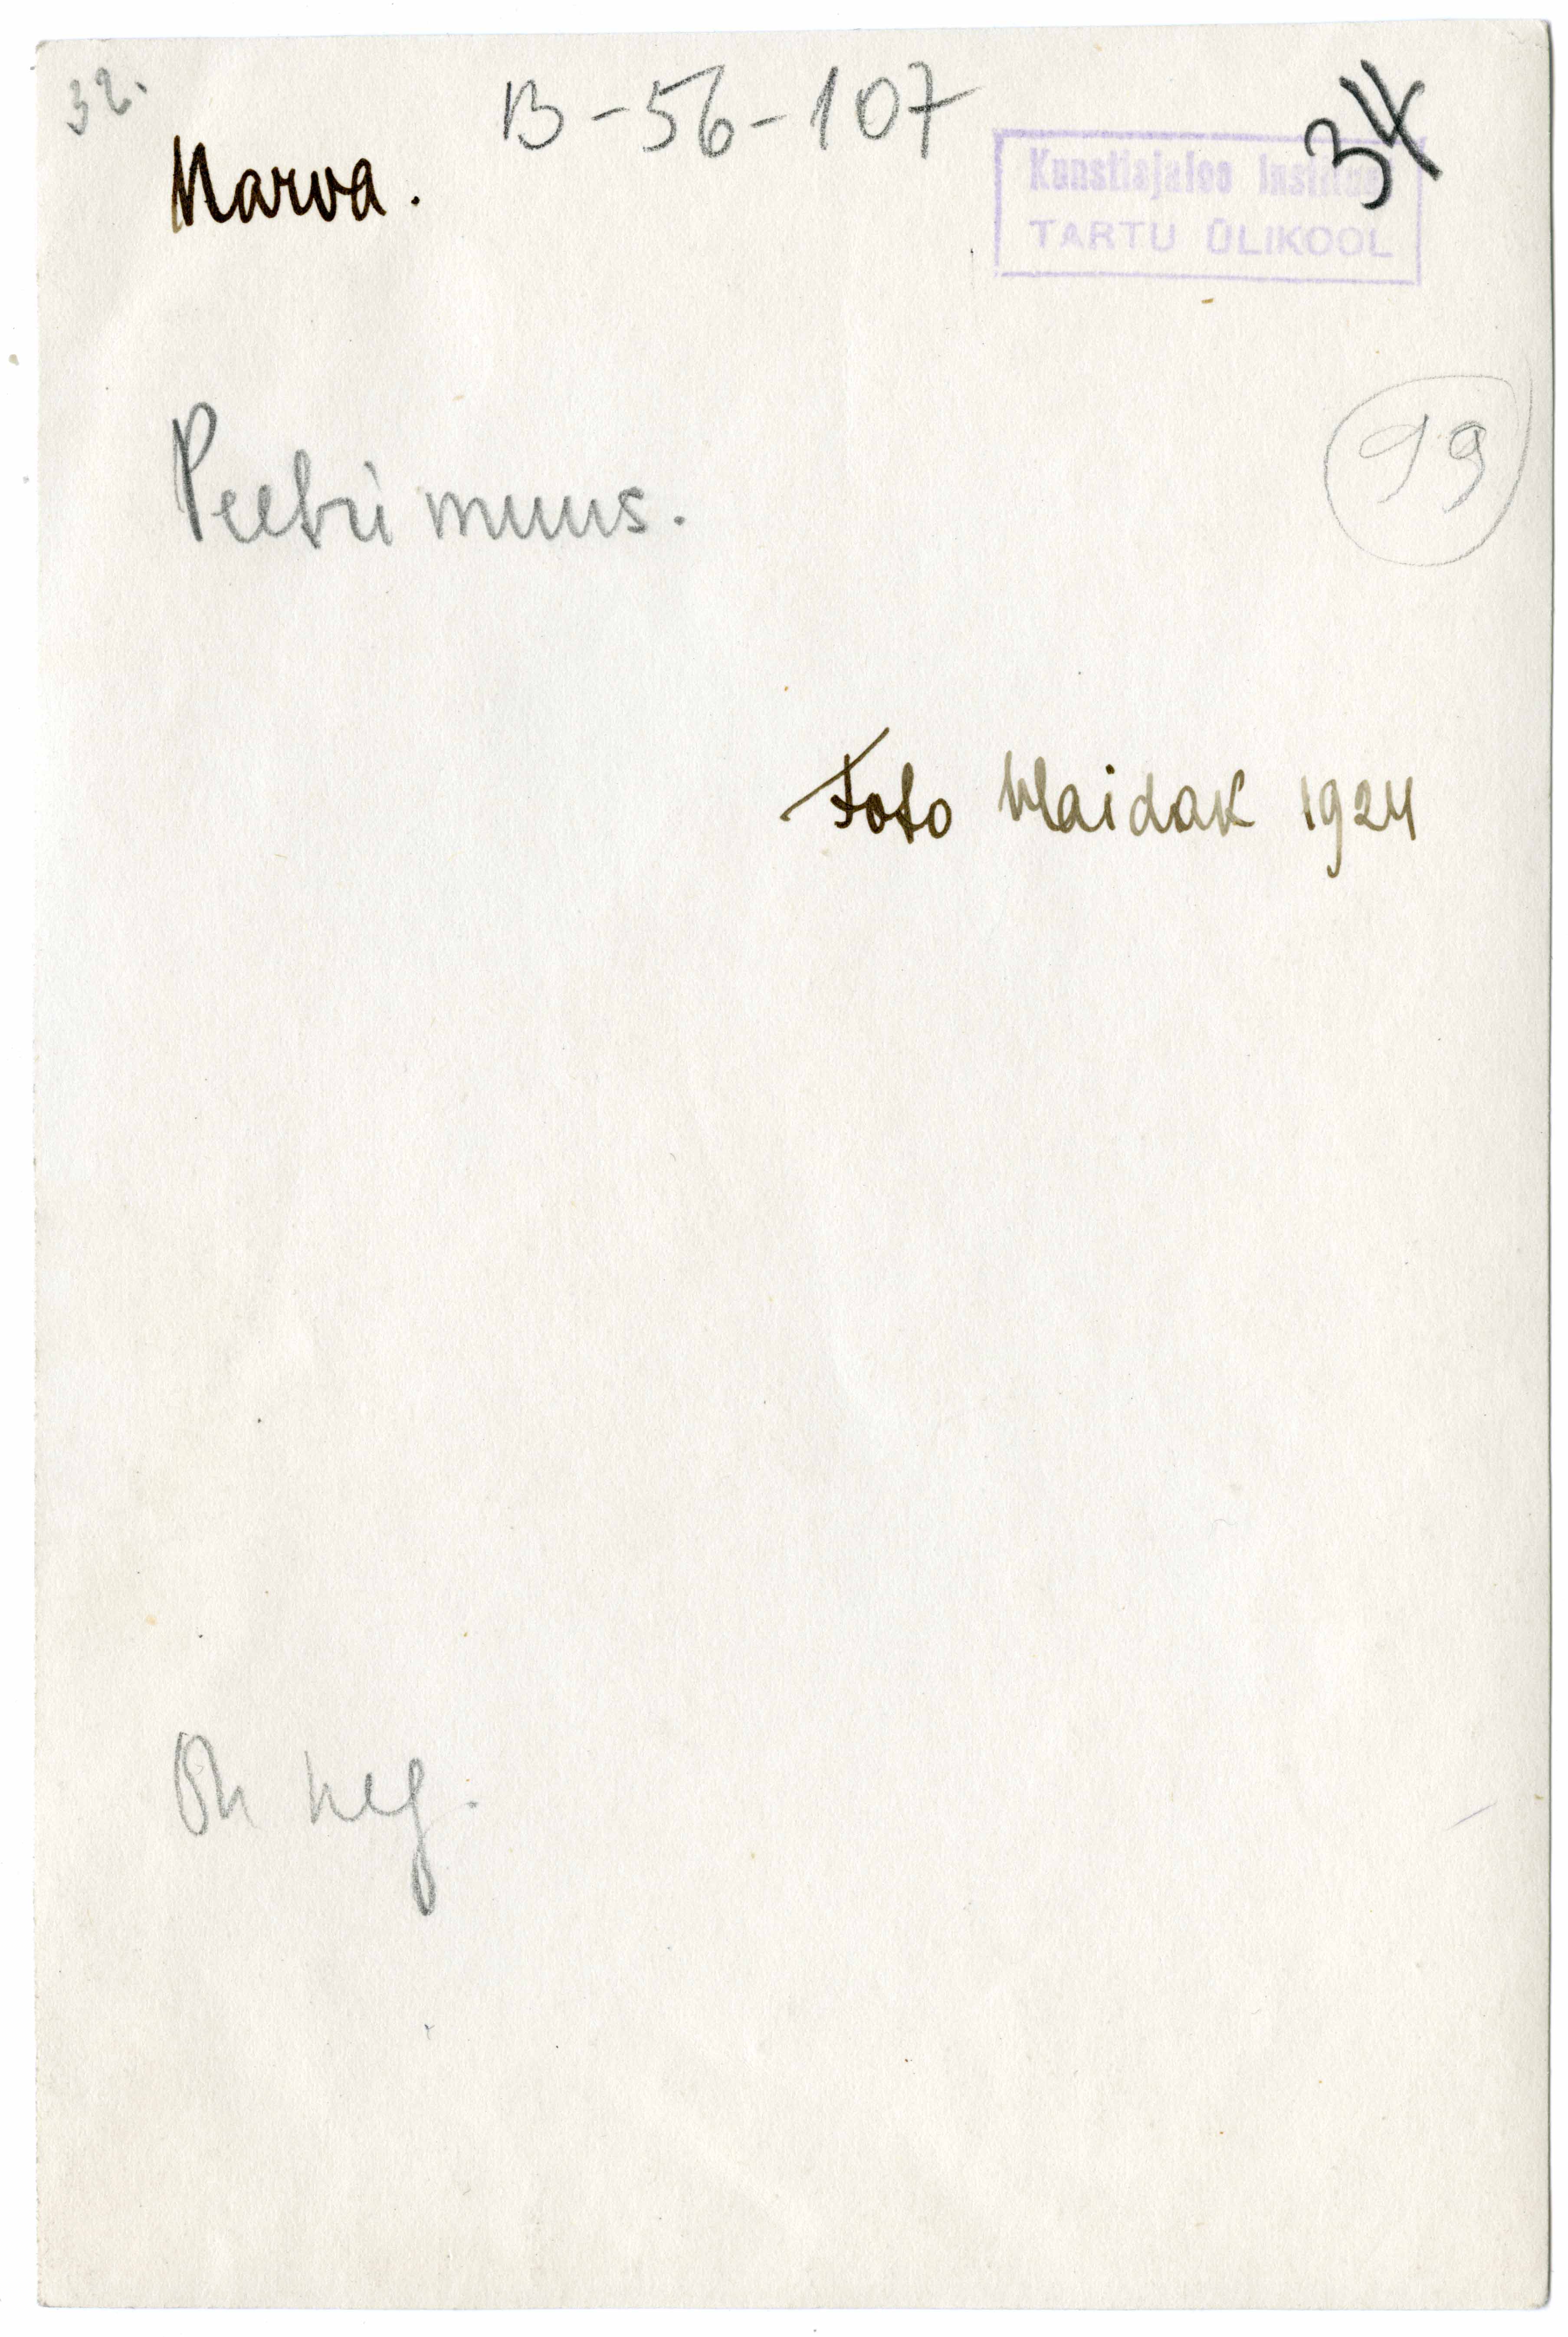 32.
B-56-107
34
Narva.
Kunstiajaloo Instituut
TARTU ÜLIKOOL
19
Peetri muus.
Foto Maidak 1924
On neg.